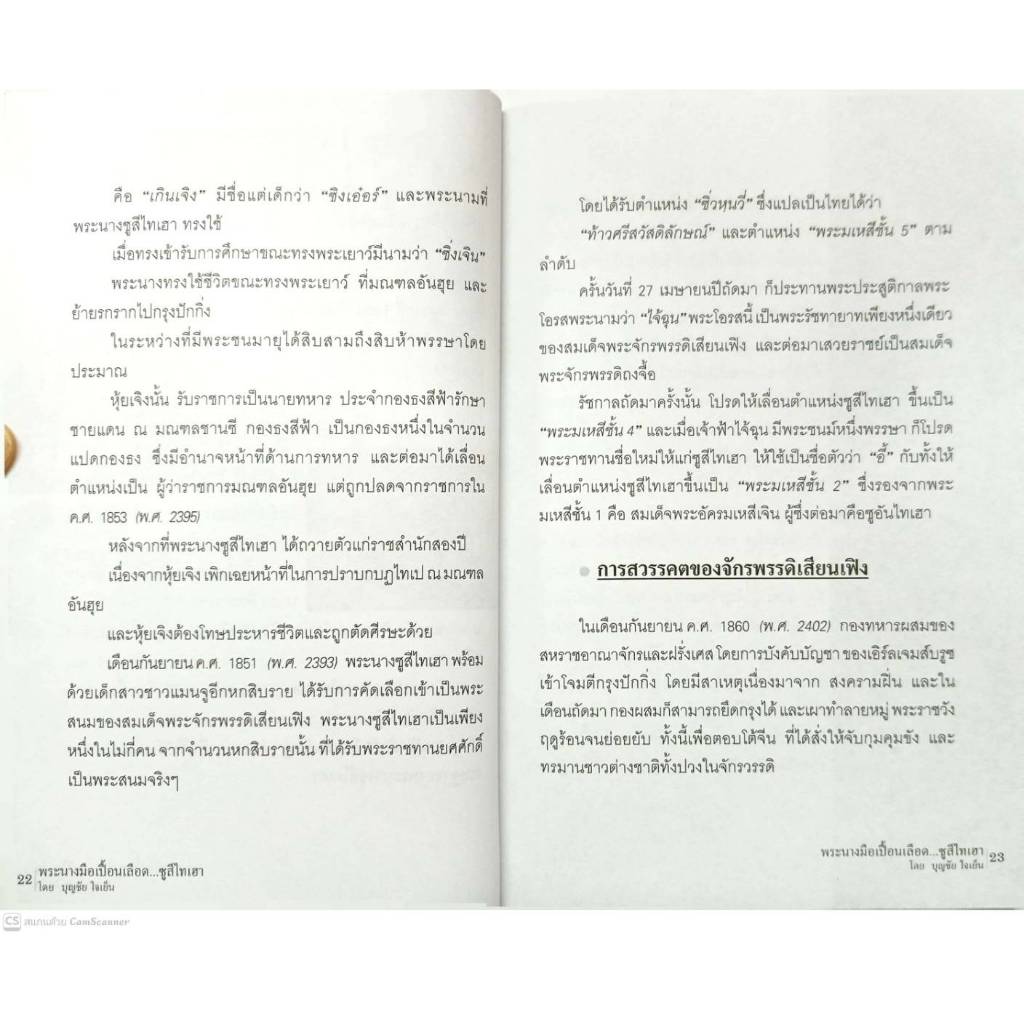 คือ “เกินเจิง” มีชื่อแต่เด็กว่า “ซิงเอ๋อร์” และพระนามที่
พระนางซูสีไทเฮา ทรงใช้
เมื่อทรงเข้ารับการศึกษาขณะทรงพระเยาว์มีนามว่า “ซิ่งเจิน”
พระนางทรงใช้ชีวิตขณะทรงพระเยาว์ ที่มณฑลอันฮุย และ
ย้ายรกรากไปกรุงปักกิ่ง
ในระหว่างที่มีพระชนมายุได้สิบสามถึงสิบห้าพรรษาโดย
ประมาณ
หุ้ยเจิงนั้น รับราชการเป็นนายทหาร ประจำกองธงสีฟ้ารักษา
ชายแดน ณ มณฑลชานซี กองธงสีฟ้า เป็นกองธงหนึ่งในจำนวน
แปดกองธง ซึ่งมีอำนาจหน้าที่ด้านการทหาร และต่อมาได้เลื่อน
ตำแหน่งเป็น ผู้ว่าราชการมณฑลอันฮุย แต่ถูกปลดจากราชการใน
ค.ศ. 1853 (พ.ศ. 2395)
หลังจากที่พระนางซูสีไทเฮา ได้ถวายตัวแก่ราชสำนักสองปี
เนื่องจากหุ้ยเจิง เพิกเฉยหน้าที่ในการปราบกบฏไทเป ณ มณฑล
อันฮุย
และหุ้ยเจิงต้องโทษประหารชีวิตและถูกตัดศีรษะด้วย
เดือนกันยายน ค.ศ. 1851 (พ.ศ. 2393) พระนางซูสีไทเฮา พร้อม
ด้วยเด็กสาวชาวแมนจูอีกหกสิบราย ได้รับการคัดเลือกเข้าเป็นพระ
สนมของสมเด็จพระจักรพรรดิเสียนเฟิง พระนางซูสีไทเฮาเป็นเพียง
หนึ่งในไม่กี่คน จากจำนวนหกสิบรายนั้น ที่ได้รับพระราชทานยศศักดิ์
เป็นพระสนมจริงๆ
22 พระนางมือเปื้อนเลือด...ซูสีไทเฮา
โดย บุญชัย ใจเย็น
CS สแกนด้วย CamScanner
โดยได้รับตำแหน่ง “ซิ่วหฺนวี่” ซึ่งแปลเป็นไทยได้ว่า
“ท้าวศรีสวัสดิลักษณ์” และตำแหน่ง “พระมเหสีชั้น 5” ตาม
ลำดับ
ครั้นวันที่ 27 เมษายนปีถัดมา ก็ประทานพระประสูติกาลพระ
โอรสพระนามว่า “ไจ้ฉุน” พระโอรสนี้ เป็นพระรัชทายาทเพียงหนึ่งเดียว
ของสมเด็จพระจักรพรรดิเสียนเฟิง และต่อมาเสวยราชย์เป็นสมเด็จ
พระจักรพรรดิถงจื้อ
รัชกาลถัดมาครั้งนั้น โปรดให้เลื่อนตำแหน่งซูสีไทเฮา ขึ้นเป็น
“พระมเหสีชั้น 4” และเมื่อเจ้าฟ้าไจ้ฉุน มีพระชนม์หนึ่งพรรษา ก็โปรด
พระราชทานชื่อใหม่ให้แก่ซูสีไทเฮา ให้ใช้เป็นชื่อตัวว่า “อี้” กับทั้งให้
เลื่อนตำแหน่งซูสีไทเฮาขึ้นเป็น “พระมเหสีชั้น 2” ซึ่งรองจากพระ
มเหสีชั้น 1 คือ สมเด็จพระอัครมเหสีเจิน ผู้ซึ่งต่อมาคือซูอันไทเฮา
การสวรรคตของจักรพรรดิเสียนเฟิง
ในเดือนกันยายน ค.ศ. 1860 (พ.ศ. 2402) กองทหารผสมของ
สหราชอาณาจักรและฝรั่งเศส โดยการบังคับบัญชา ของเอิร์ลเจมส์บรูซ
เข้าโจมตีกรุงปักกิ่ง โดยมีสาเหตุเนื่องมาจาก สงครามฝิ่น และใน
เดือนถัดมา กองผสมก็สามารถยึดกรุงได้ และเผาทำลายหมู่ พระราชวัง
ฤดูร้อนจนย่อยยับ ทั้งนี้เพื่อตอบโต้จีน ที่ได้สั่งให้จับกุมคุมขัง และ
ทรมานชาวต่างชาติทั้งปวงในจักรวรรดิ
พระนางมือเปื้อนเลือด...ซูสีไทเฮา 23
โดย บุญชัย ใจเย็น